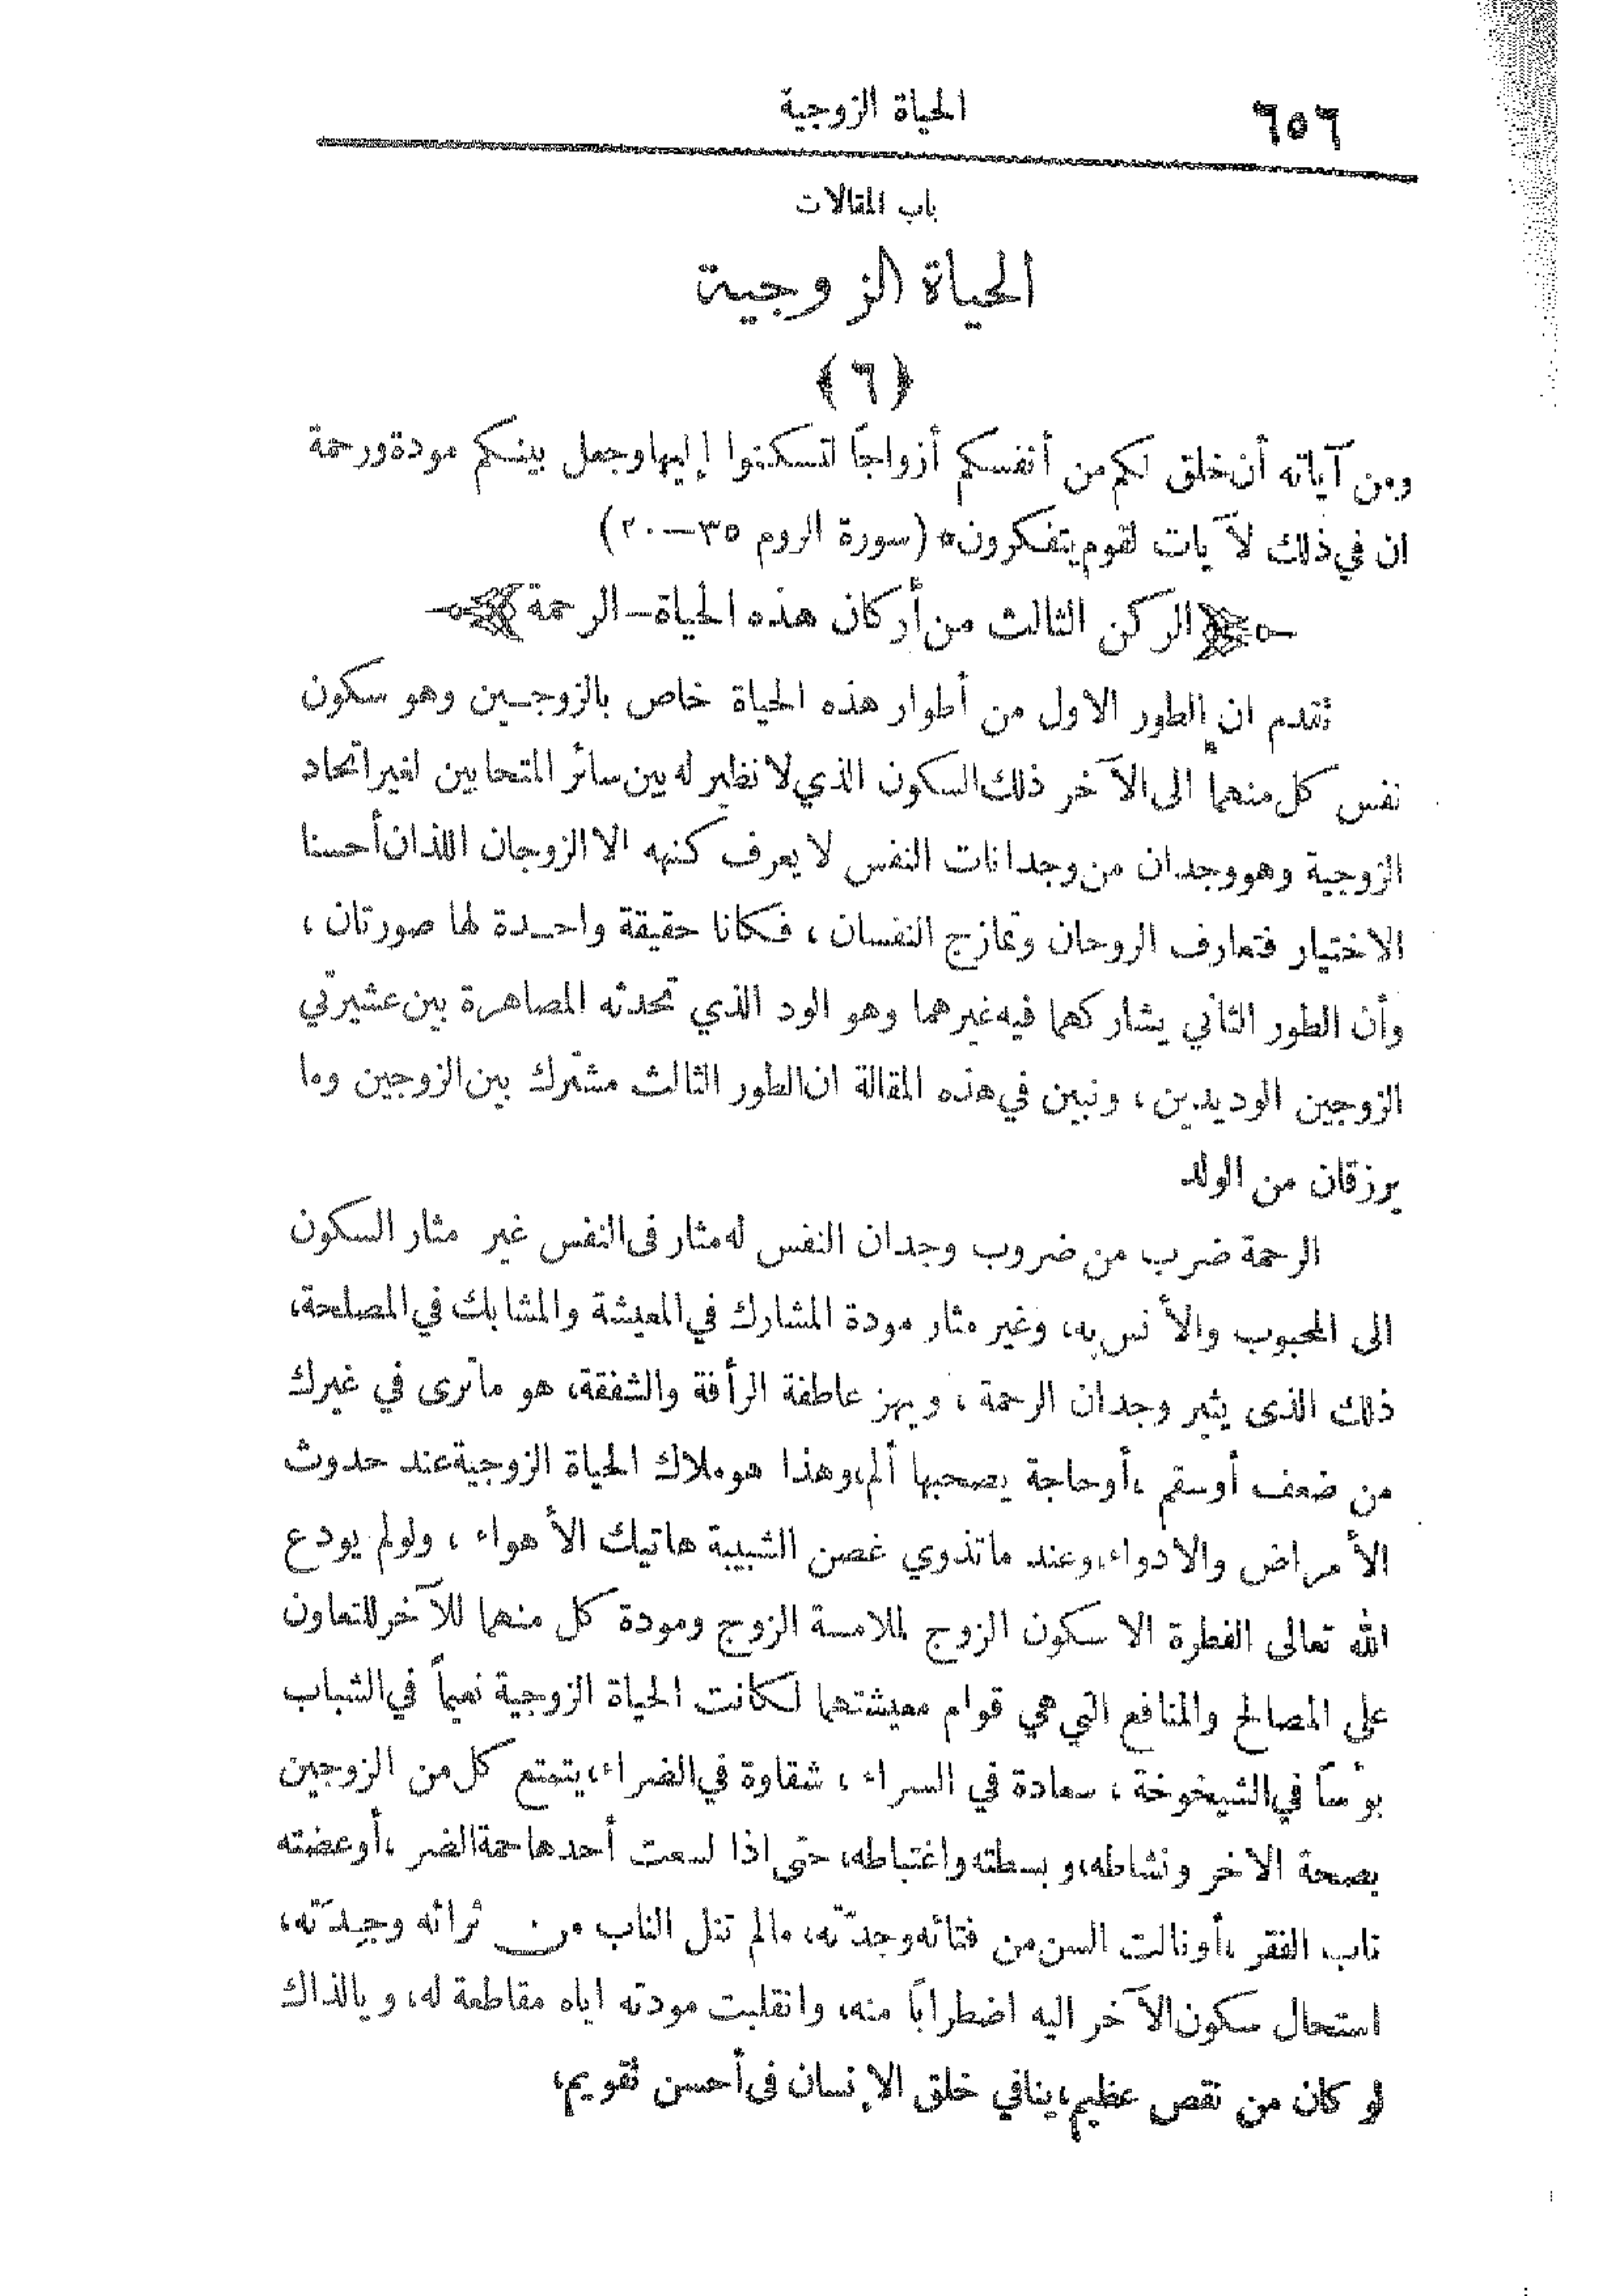 ٦٥٦
الحياة الزوجية
باب المقالات
الحياة الزوجية
﴿ ٦ ﴾
ومن آياته أن خلق لكم من أنفسكم أزواجاً لتسكنوا إليها وجعل بينكم مودة ورحمة
ان في ذلك لآيات لقوم يتفكرون* (سورة الروم ٣٥—٢٠)
الركن الثالث من أركان هذه الحياة — الرحمة
تقدم ان الطور الاول من أطوار هذه الحياة خاص بالزوجين وهو سكون
نفس كل منهما الى الآخر ذلك السكون الذي لا نظير له بين سائر المتحابين لغير اتحاد
الزوجية وهو وجدان من وجدانات النفس لا يعرف كنهه الا الزوجان اللذان أحسنا
الاختيار فتعارف الروحان وتمازج النفسان ، فكانا حقيقة واحدة لها صورتان ،
وأن الطور الثاني يشاركهما فيه غيرهما وهو الود الذي تحدثه المصاهرة بين عشيرتي
الزوجين الوديدين ، ونبين في هذه المقالة ان الطور الثالث مشترك بين الزوجين وما
يرزقان من الولد
الرحمة ضرب من ضروب وجدان النفس له مثار فى النفس غير مثار السكون
الى المحبوب والأنس به، وغير مثار مودة المشارك في المعيشة والمشابك في المصلحة،
ذلك الذى يثير وجدان الرحمة ، ويهز عاطفة الرأفة والشفقة، هو ما ترى في غيرك
من ضعف أو سقم ، أو حاجة يصحبها ألم، وهذا هو ملاك الحياة الزوجية عند حدوث
الأمراض والادواء، وعند ما تذوي غصن الشبيبة هاتيك الأهواء ، ولو لم يودع
الله تعالى الفطرة الا سكون الزوج لملامسة الزوج ومودة كل منهما للآخر للتعاون
على المصالح والمنافع التي هي قوام معيشتهما لكانت الحياة الزوجية نعيماً في الشباب
بؤساً في الشيخوخة ، سعادة في السراء ، شقاوة في الضراء، يتمتع كل من الزوجين
بصحة الاخر ونشاطه، وبسطته واغتباطه، حتى اذا لسعت أحدهما حمة الضر ، أو عضته
ناب الفقر ، أو نالت السن من فتائه وجدّته، ما لم تنل الناب من ثرائه وجِدَته،
استحال سكون الآخر اليه اضطراباً منه، وانقلبت مودته اياه مقاطعة له، ويا لذاك
لو كان من نقص عظيم، ينافي خلق الإنسان فى أحسن تقويم،